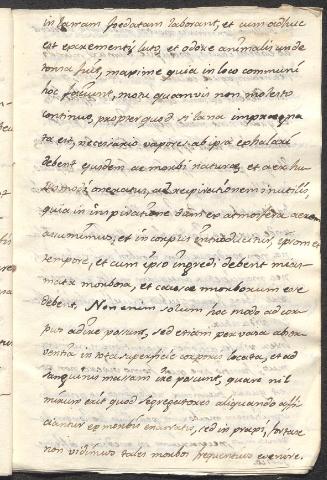 in lanam foedatam laborant, et cum adhuc
est excrementis, luto, et odore animalis unde
tonsa fuit, maxime quia in loco communi
hoc faciunt, motu quamvis non molesto
continuo, propter quod si lana impraegna
ta est, necessario vapores ab ipsa exhalari
debent ejusdem ac morbi naturae, et aer hu
jusmodi ad respirationem inutilis,
quia in inspiratione dum ex atmosfera aerem
assumimus, et in corpus introducitur, ipso
tempore, et cum ipso ingredi debent mias
mata morbosa, et causae morborum esse
debent. Non enim solum hoc modo ad cor
pus adire possunt, sed etiam per vasa absor
ventia in tota superficie corporis locata, et ad
sanguinis massam ire possunt, quare nil
mirum erit quod segregatores aliquando affi
ciantur ex morbis enarratis, sed in praxi, fortasse
non vidimus tales morbos frequentius evenire.